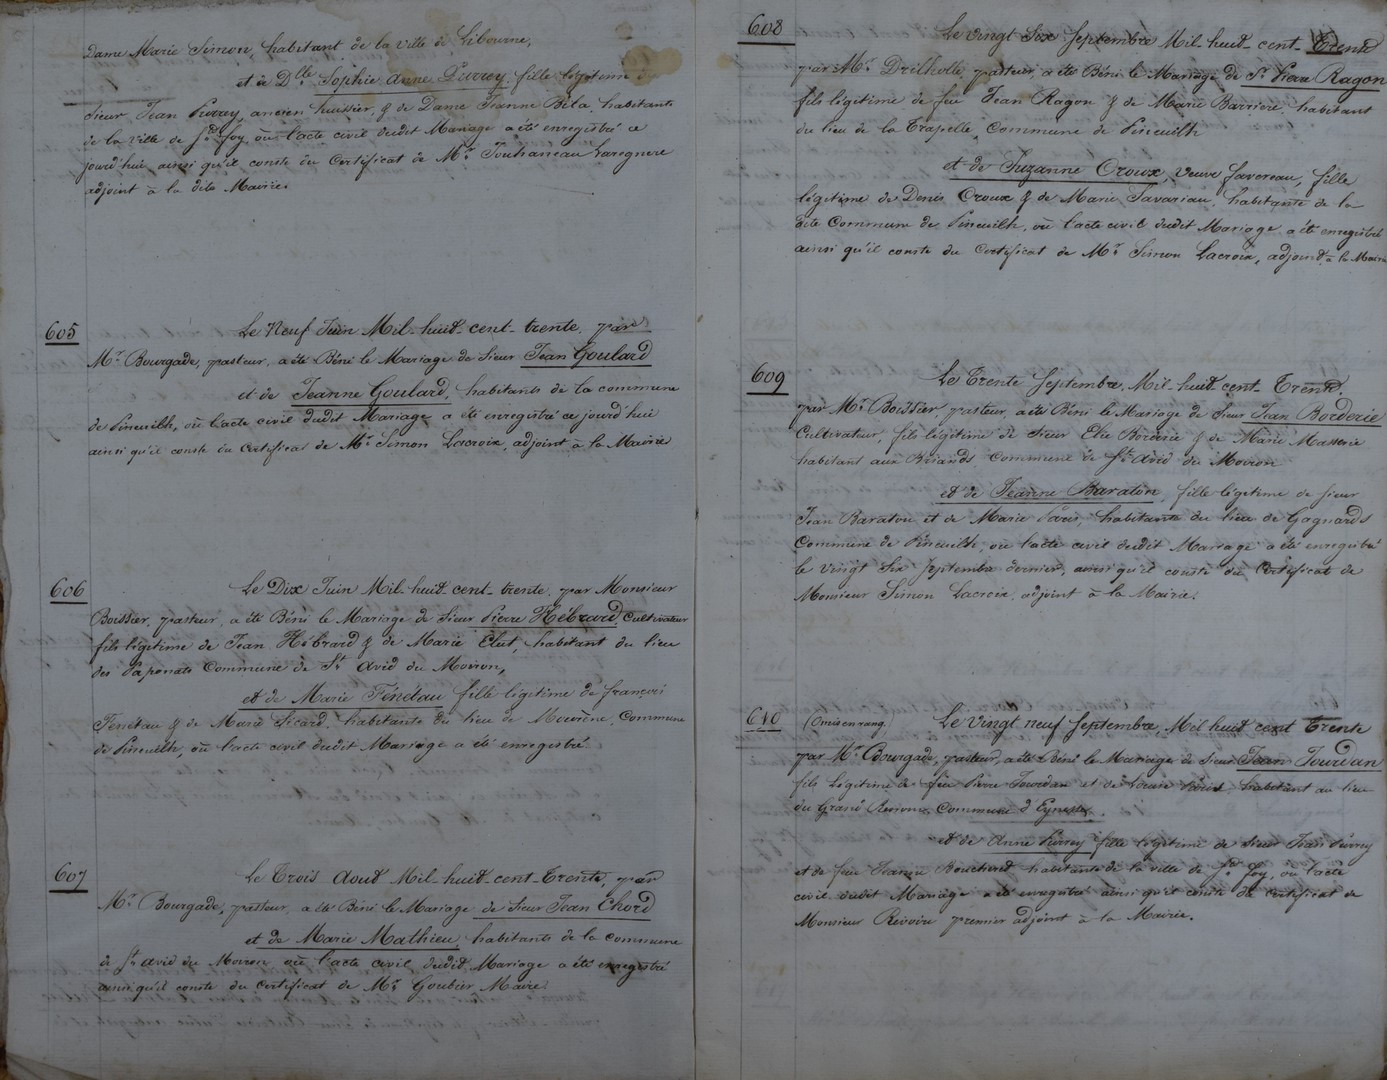 dame Marie Simon, habitant de la ville de Libourne,
et de Dlle Sophie Anne Purrey fille légitime du
sieur Jean Purrey, ancien huissier, & de Dame Jeanne Bila habitante
de la ville de Ste Foy, où l'acte civil dudit Mariage a été enregistré ce
jourd'hui ainsi qu'il conste du Certificat de Mr. Jouhaneau Laregnere
adjoint à la dite Mairie.
605
Le Neuf Juin Mil-huit-cent-trente, par
Mr. Bourgade, pasteur, a été Béni le Mariage de Sieur Jean Goulard
et de Jeanne Goulard, habitants de la commune
de Pineuilh, où l'acte civil dudit Mariage a été enregistré ce jourd'hui
ainsi qu'il conste du Certificat de Mr. Simon Lacroix, adjoint à la Mairie
606
Le Dix Juin Mil-huit-cent-trente, par Monsieur
Boissier, pasteur, a été Béni le Mariage de Sieur Pierre Hébrard, Cultivateur
fils légitime de Jean Hébrard & de Marie Elut, habitant du lieu
des Saponats Commune de St. Avid du Moiron,
et de Marie Fénélau fille légitime de françois
Fénélau & de Marie Sicard, habitante du lieu de Mourène, Commune
de Pineuilh, où l'acte civil dudit Mariage a été enregistré.
607
Le Trois Aout Mil-huit-cent-Trente, par
Mr. Bourgade, pasteur, a été Béni le Mariage de Sieur Jean Chord
et de Marie Mathieu, habitants de la commune
de St. Avid du Moiron où l'acte civil dudit Mariage a été enregistré
ainsi qu'il conste du Certificat de Mr. Goubier Maire.
608
Le vingt Six Septembre Mil-huit-cent-Trente
par Mr. Drilholle, pasteur, a été Béni le Mariage de Sr. Pierre Ragon
fils légitime de feu Jean Ragon & de Marie Barriere, habitant
du lieu de la Trapelle, Commune de Pineuilh
et de Suzanne Croux, veuve favereau, fille
légitime de Denis Croux & de Marie Tavariau, habitante de la
dite Commune de Pineuilh, où l'acte civil dudit Mariage a été enregistré
ainsi qu'il conste du Certificat de Mr. Simon Lacroix, adjoint, à la Mairie
609
Le Trente Septembre, Mil-huit-cent-Trente,
par Mr. Boissier, pasteur, a été Béni le Mariage de Sieur Jean Borderie
Cultivateur, fils légitime de Sieur Elie Borderie & de Marie Masserie
habitant aux Briands Commune de St. Avid du Moiron
et de Jeanne Baraton, fille légitime de Sieur
Jean Baraton et de Marie Paris, habitante du lieu de Gagnards
Commune de Pineuilh, où l'acte civil dudit Mariage a été enregistré
le vingt Six Septembre dernier, ainsi qu'il conste du Certificat de
Monsieur Simon Lacroix, adjoint à la Mairie.
610
(Omis en rang)
Le vingt neuf Septembre, Mil huit cent Trente
par Mr. Bourgade, pasteur, a été Béni le Mariage de Sieur Jean Jourdan
fils légitime de feu Pierre Jourdan et de Louise habitant au lieu
du Grand Commune d'Eynesse.
et de Anne Purrey fille légitime de Sieur Jean Purrey
et de feu Jeanne Boucherit habitante de la ville de Ste Foy, où l'acte
civil dudit Mariage a été enregistré ainsi qu'il conste du Certificat de
Monsieur Rivoire premier adjoint à la Mairie.